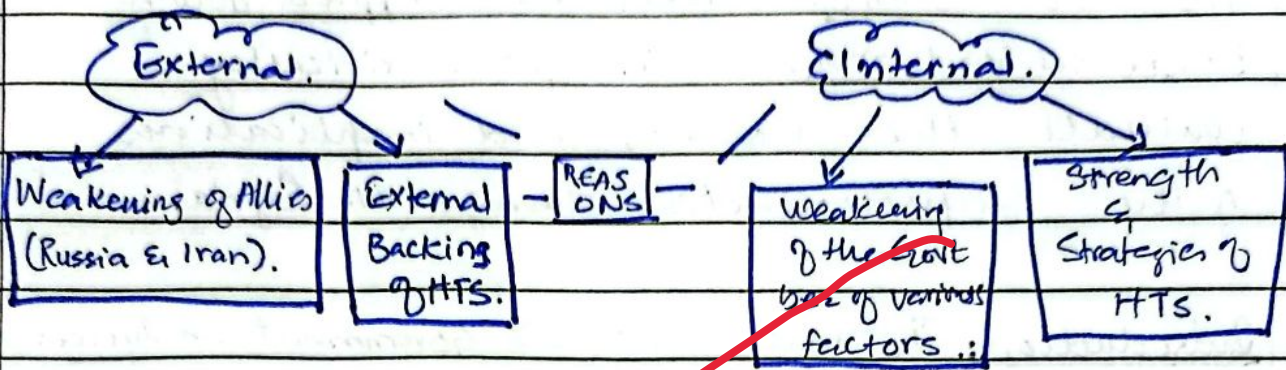 External.
Internal.
Weakening of Allies
(Russia & Iran).
External
Backing
of HTS.
REAS
ONS
Weakening
of the Govt
bcz of various
factors .:
Strength
&
Strategies of
HTS.